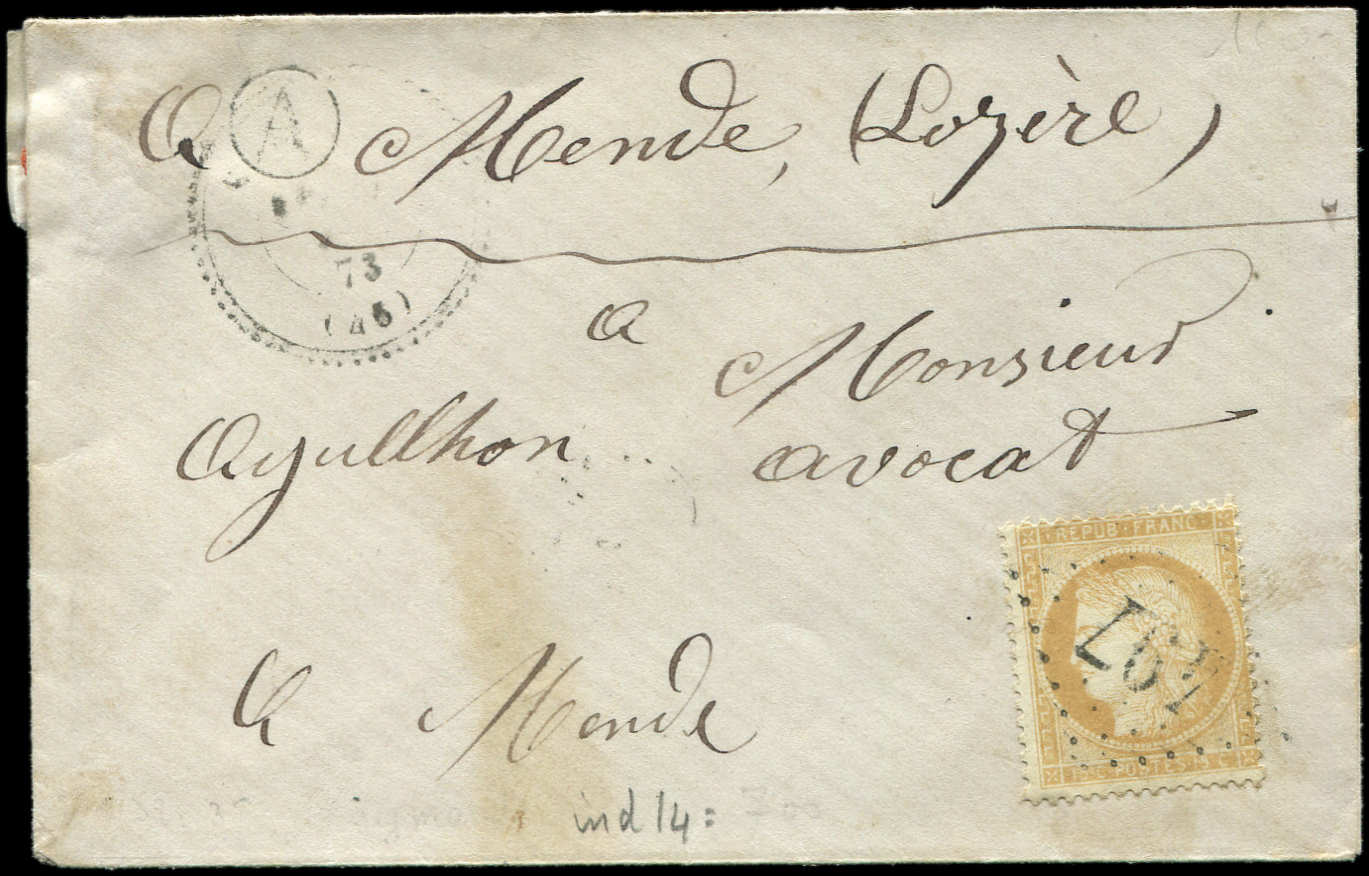 A
a Mende, (Lozère)
73
(46)
a Monsieur
Ayullhon avocat
REPUB·FRANC·
15 C POSTES 15 C
a Mende
ind 14: